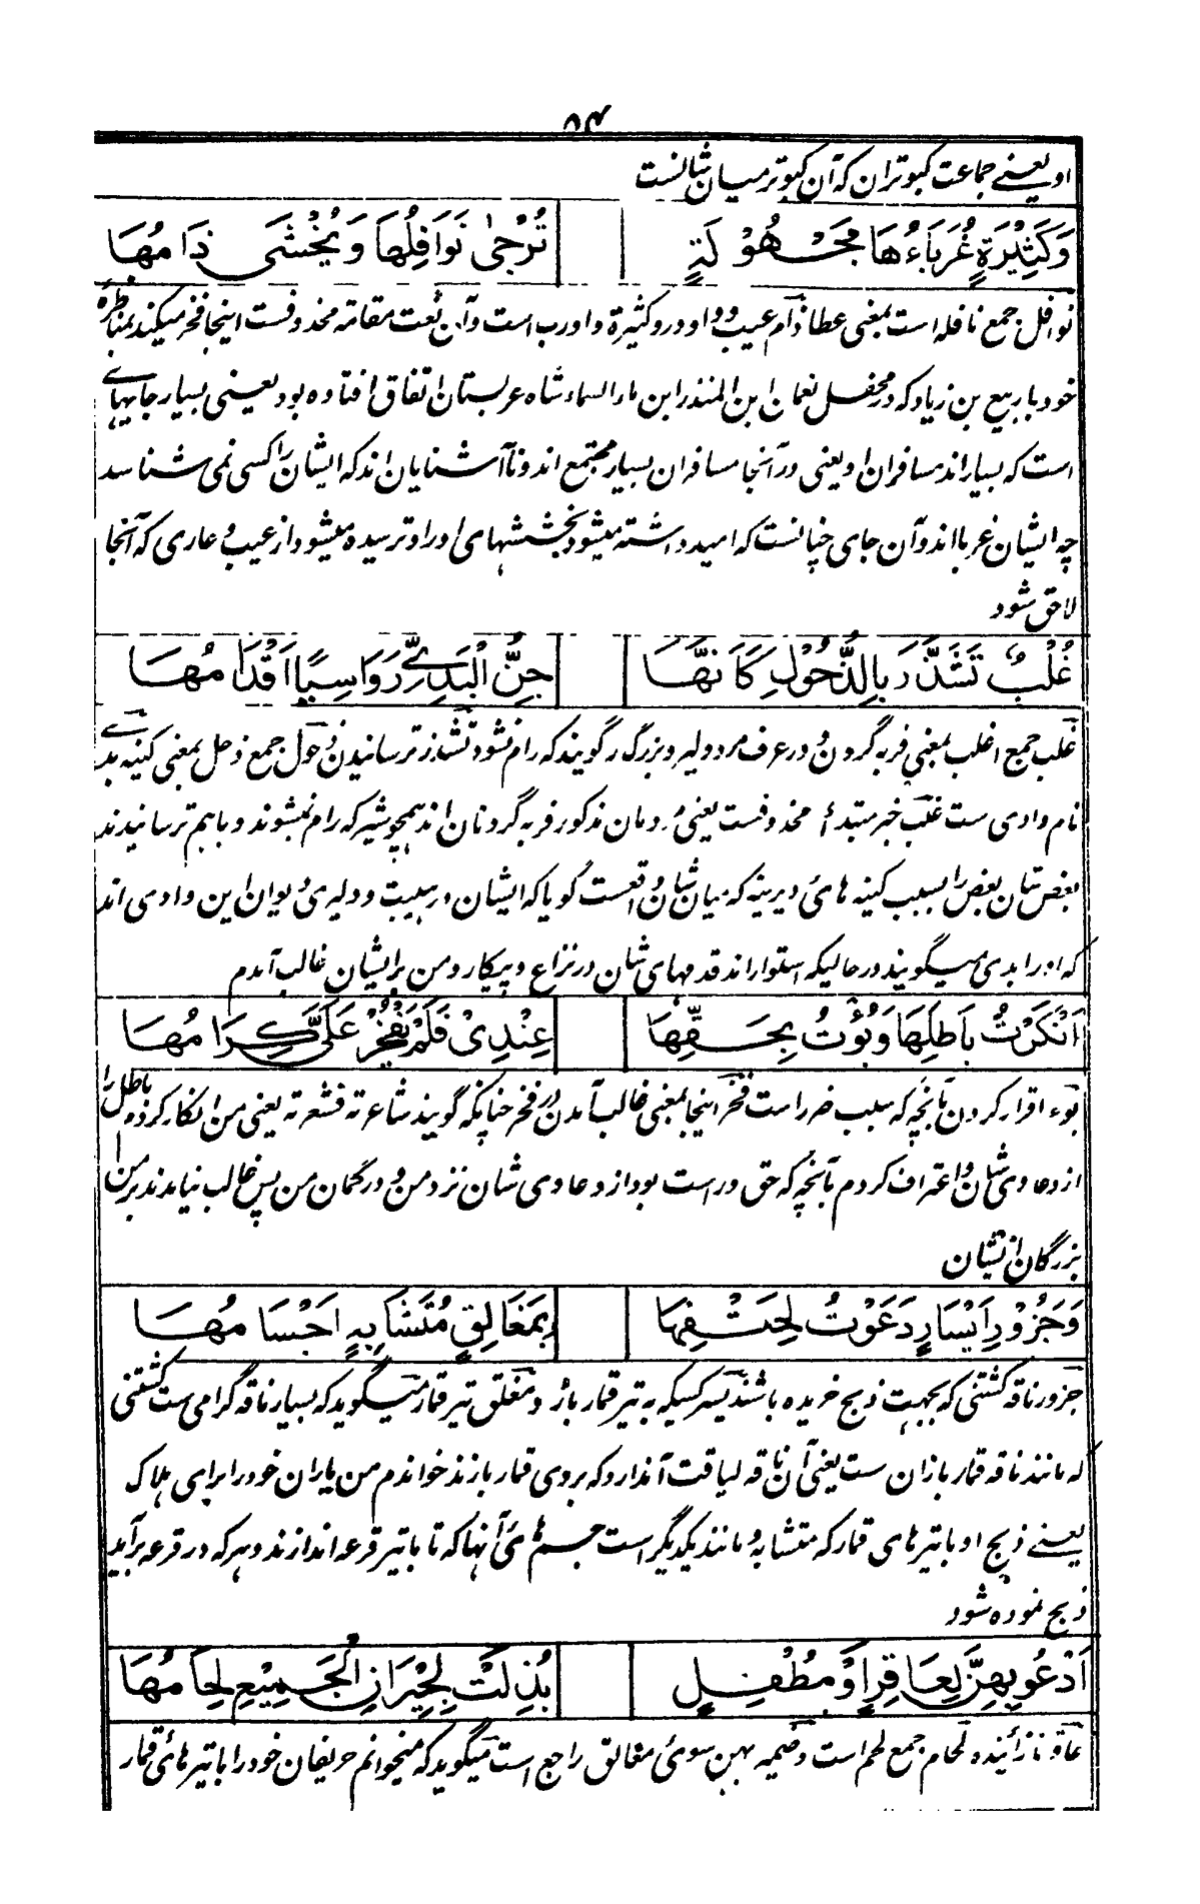 ۸۴
او یعنے جماعت کبوتران کہ آن کبوتر میان شانست
وَكَثِيْرَةٍ غُرَبَاءُهَا مَجْهُوْلَةٍ تُرْجىٰ نَوَافِلُهَا وَيُخْشَى ذَامُهَا
نوافل جمع نافلہ است بمعنی عطا ذام عیب و واو در وکثیرة واو رب است و آن نعت مقامة محذوفست اینجا فخر میکند بمناظرہ
خود با ربیع بن زیاد کہ در محفل نعمان ابن المنذر ابن ماء السماء شاہ عربستان اتفاق افتادہ بود یعنی بسیار جایہاے
است کہ بسیار اند مسافران او یعنی در آنجا مسافران بسیار مجتمع اند و نا آشنایان اند کہ ایشان را کسی نمی شناسد
چہ ایشان غربا اند و آن جای چنانست کہ امید داشتہ میشود بخششہای او را و ترسیدہ میشود از عیب و عاری کہ آنجا
لاحق شود
غُلْبٌ تَشَذَّرَ بِالذُّحُوْلِ كَاَنَّهَا جِنُّ الْبَدِيِّ رَوَاسِيًا اَقْدَامُهَا
غلب جمع اغلب بمعنی فربہ گردن و در عرف مرد دلیر و بزرگ را گویند کہ رام نشود تشذر ترسانیدن ذحول جمع ذحل بمعنی کینہ بدے
نام وادی ست غلب خبر مبتدأ محذوفست یعنی مردمان مذکور فربہ گردنان اند ہمچو شیر کہ رام نمیشوند و باہم ترسانیدند
بعض شان بعض را بسبب کینہ ہای دیرینہ کہ میان شان واقعست گویا کہ ایشان در ہیبت و دلیری دیوان این وادی اند
کہ او را بدی میگویند در حالیکہ استوار اند قدمہای شان در نزاع و پیکار و من برایشان غالب آمدم
اَنْكَرْتُ بَاطِلَهَا وَبُؤْتُ بِحَقِّهَا عِنْدِیْ فَلَمْ يَفْخَرْ عَلَیَّ كِرَامُهَا
بوء اقرار کردن بآنچہ کہ سبب ضرر است فخر اینجا بمعنی غالب آمدن در فخر چنانکہ گویند شاعرتہ فشعرتہ یعنی من انکار کردم باطل را
از دعاوی شان و اعتراف کردم بآنچہ کہ حق و راست بود از دعاوی شان نزد من و در گمان من پس غالب نیامدند بر من
بزرگان ایشان
وَجَزُوْرِ اَيْسَارٍ دَعَوْتُ لِحَتْفِهَا بِمَغَالِقٍ مُتَشَابِهٍ اَجْسَامُهَا
جزور ناقہ کشتنی کہ بجہت ذبح خریدہ باشند یسر کسیکہ بہ تیر قمار بازد و مغلق تیر قمار میگوید کہ بسیار ناقہ گرامی ست کشتنی
کہ مانند ناقہ قمار بازان ست یعنی آن ناقہ لیاقت آندارد کہ بروی قمار بازند خواندم من یاران خود را برای ہلاک
یعنے ذبح او با تیرہای قمار کہ متشابہ و مانند یکدیگر است جسم ہای آنہا کہ تا با تیر قرعہ اندازند و ہر کہ در قرعہ برآید
ذبح نمودہ شود
اَدْعُوْ بِهِنَّ لِعَاقِرٍ اَوْ مُطْفِلٍ بُذِلَتْ لِجِيْرَانِ الْجَمِيْعِ لِحَامُهَا
عاقر نازائندہ لحام جمع لحم است و ضمیر بہن سوی مغالق راجع است میگوید کہ میخوانم حریفان خود را با تیرہای قمار